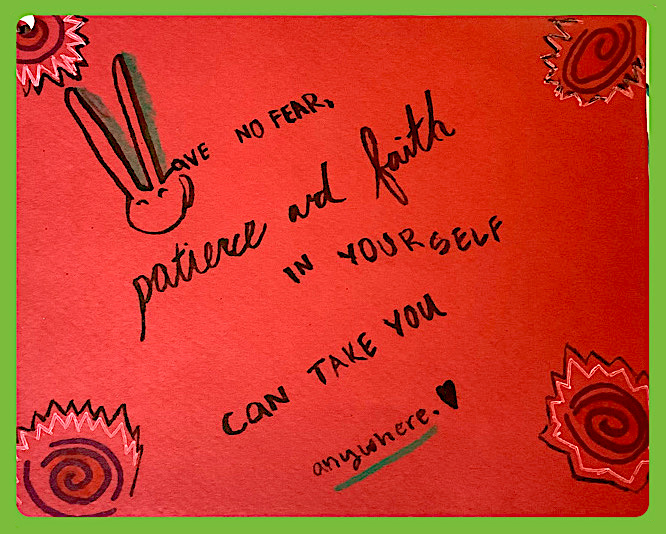 HAVE NO FEAR,
patience and faith
IN YOURSELF
CAN TAKE YOU
anywhere.